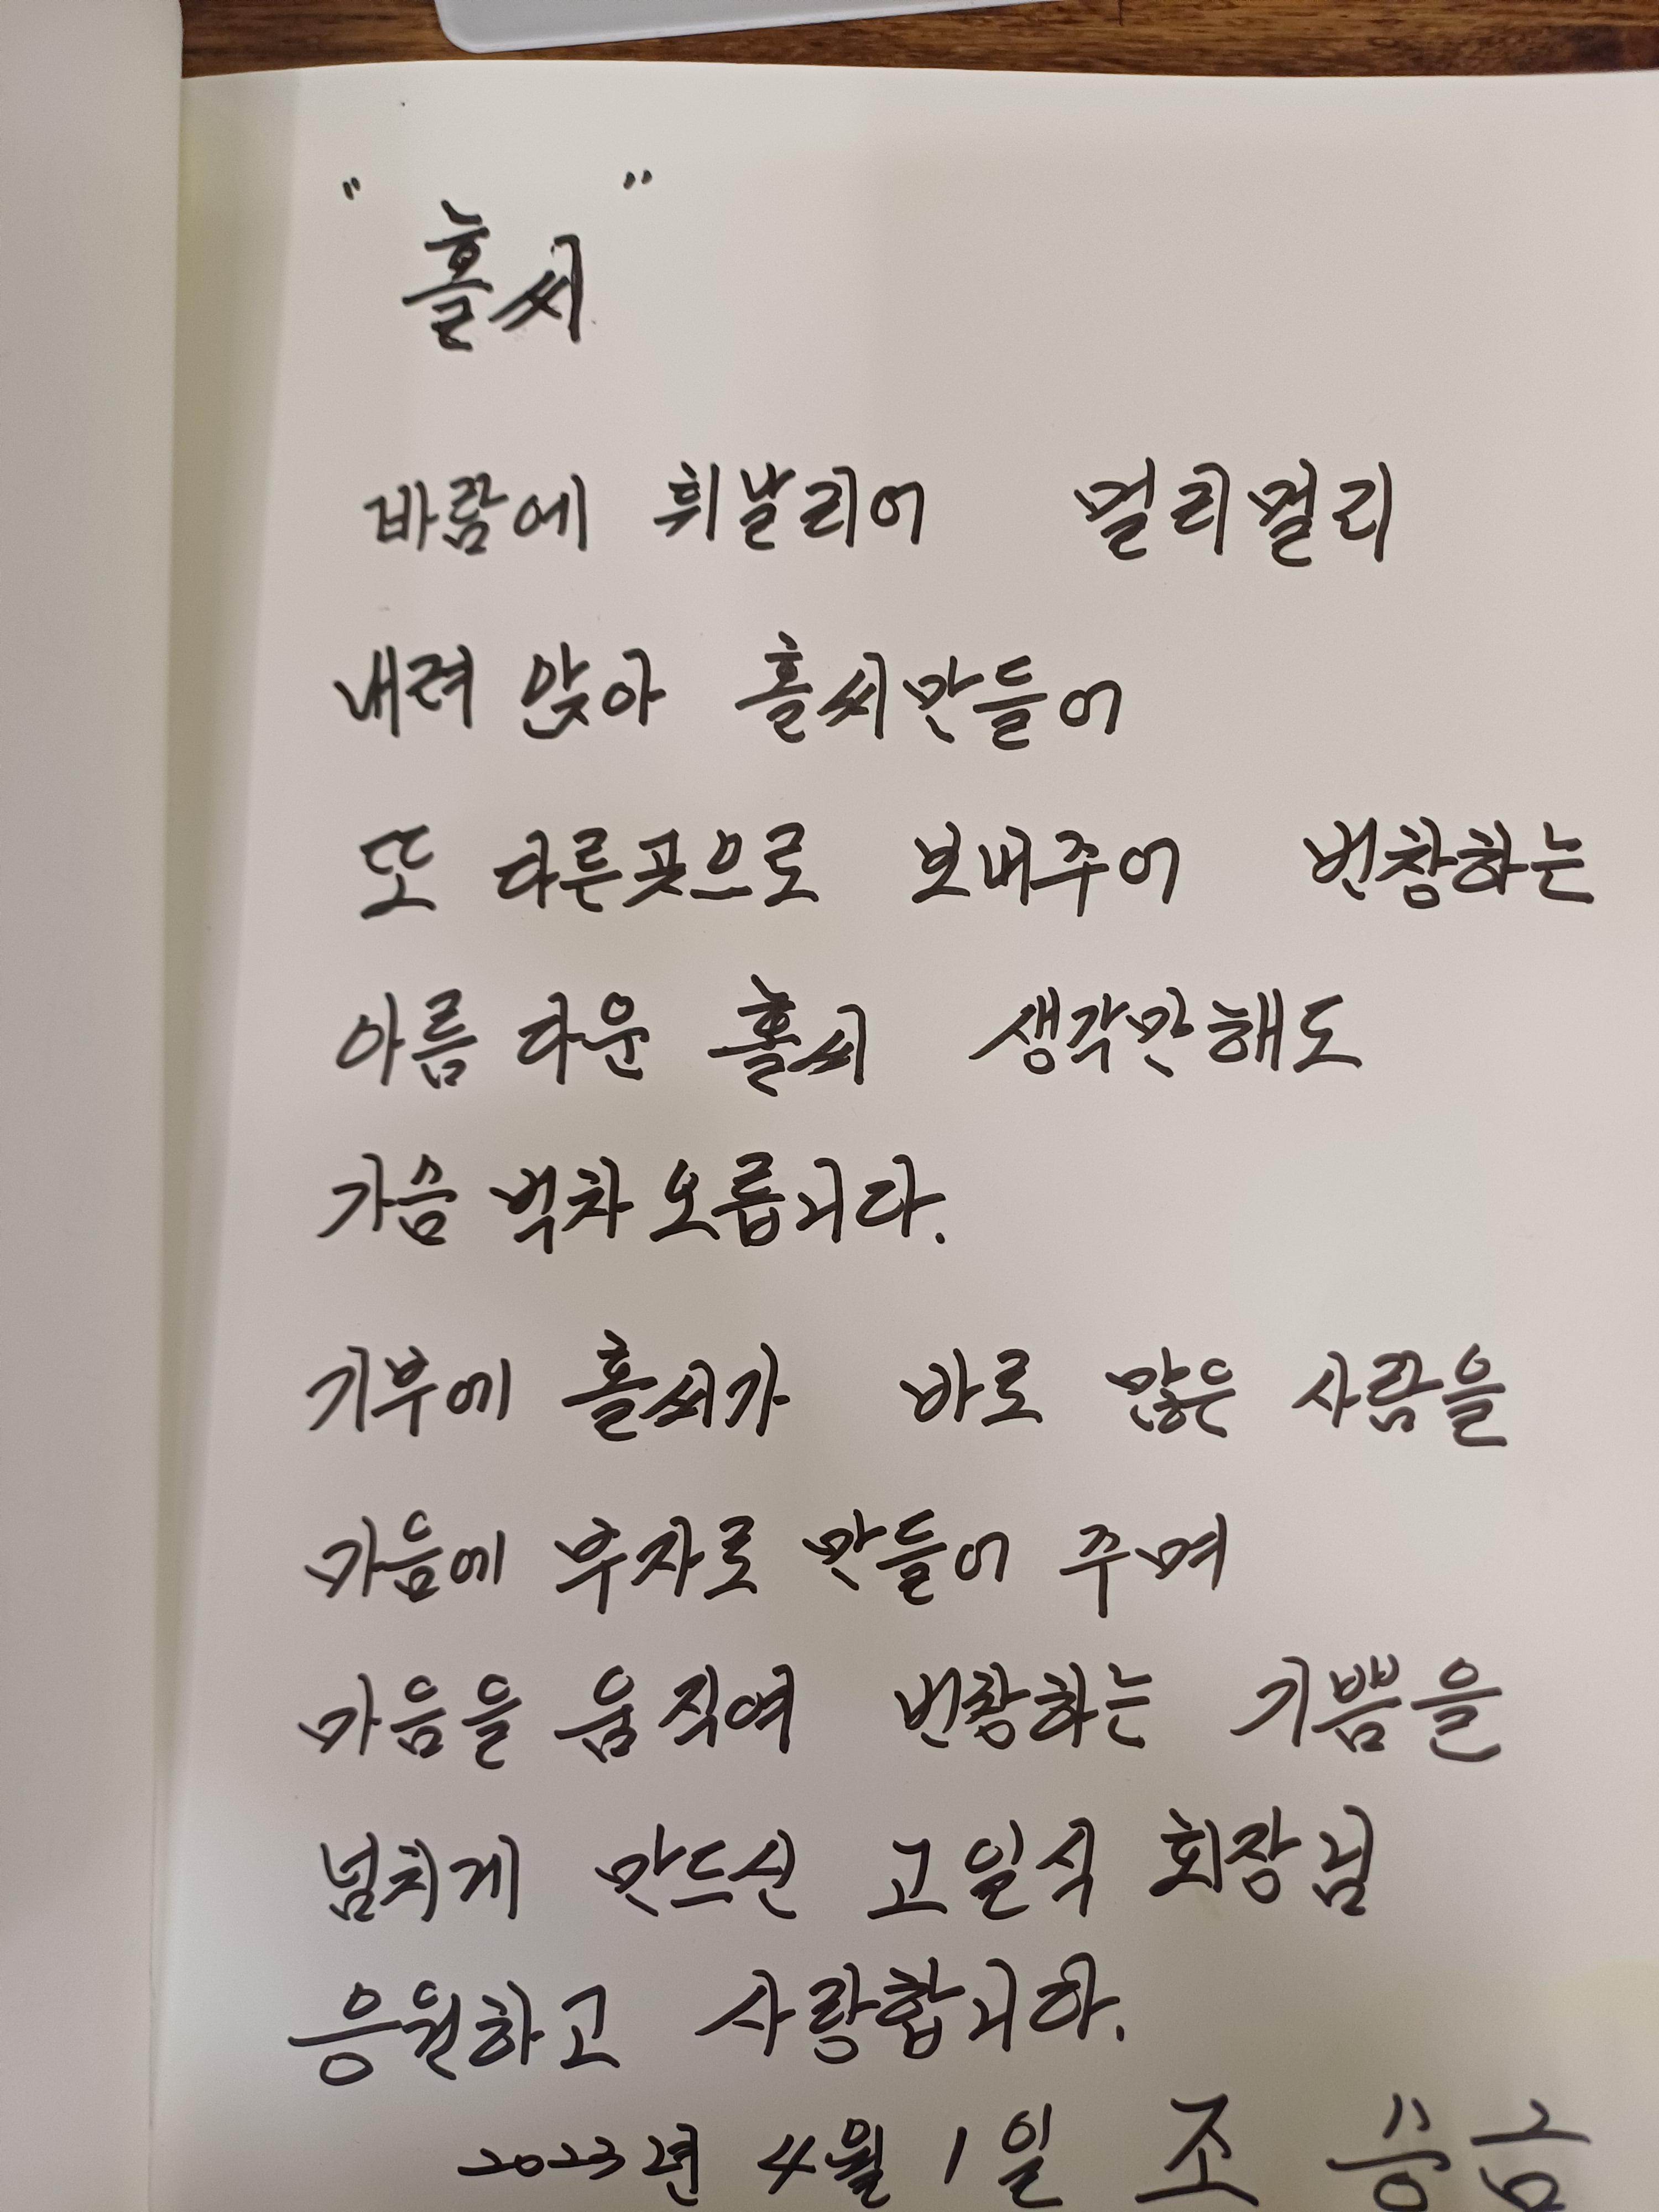 " 홀씨 "
바람에 휘날리어 멀리멀리
내려 앉아 홀씨만들어
또 다른곳으로 보내주어 번창하는
아름 다운 홀씨 생각만해도
가슴 벅차 오릅니다.
기부에 홀씨가 바로 많은 사람을
마음에 부자로 만들어 주며
마음을 움직여 번창하는 기쁨을
넘치게 만드신 고일식 회장님
응원하고 사랑합니다.
2023년 4월 1일 조